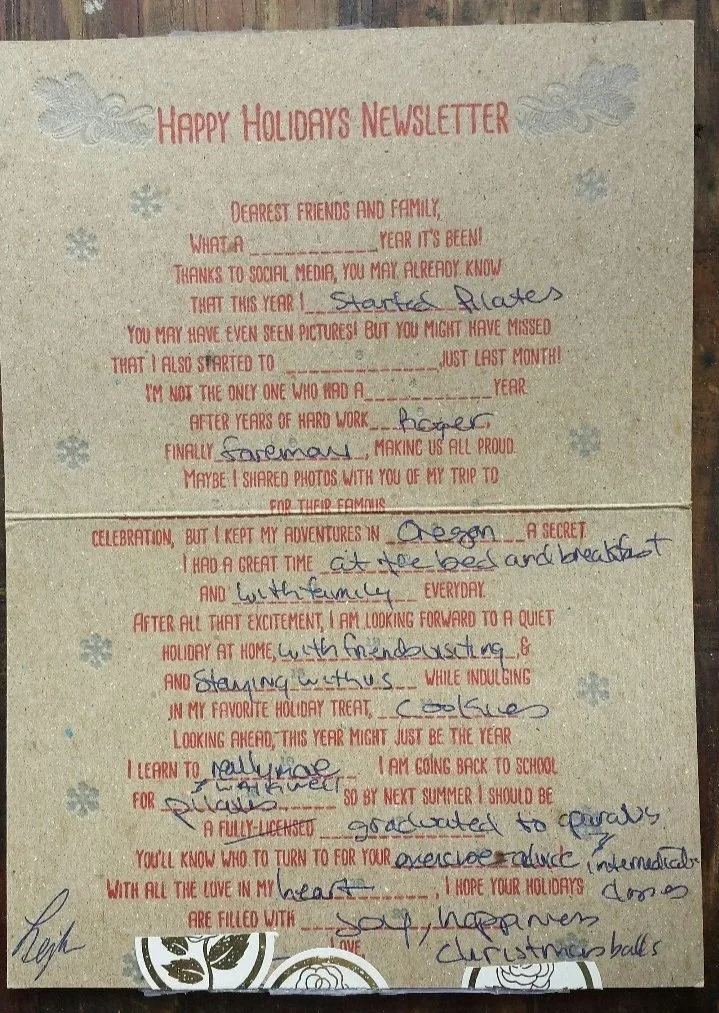 HAPPY HOLIDAYS NEWSLETTER
DEAREST FRIENDS AND FAMILY,
WHAT A ____________ YEAR IT'S BEEN!
THANKS TO SOCIAL MEDIA, YOU MAY ALREADY KNOW
THAT THIS YEAR I Started Pilates
YOU MAY HAVE EVEN SEEN PICTURES! BUT YOU MIGHT HAVE MISSED
THAT I ALSO STARTED TO ______________, JUST LAST MONTH!
I'M NOT THE ONLY ONE WHO HAD A ____________ YEAR.
AFTER YEARS OF HARD WORK Roper,
FINALLY foreman, MAKING US ALL PROUD.
MAYBE I SHARED PHOTOS WITH YOU OF MY TRIP TO
FOR THEIR FAMOUS
CELEBRATION, BUT I KEPT MY ADVENTURES IN Oregon A SECRET.
I HAD A GREAT TIME at the bed and breakfast
AND with family EVERYDAY.
AFTER ALL THAT EXCITEMENT, I AM LOOKING FORWARD TO A QUIET
HOLIDAY AT HOME, with friends visiting, &
AND Staying with us WHILE INDULGING
IN MY FAVORITE HOLIDAY TREAT, cookies
LOOKING AHEAD, THIS YEAR MIGHT JUST BE THE YEAR
I LEARN TO really move I AM GOING BACK TO SCHOOL
& walk well
FOR pilates SO BY NEXT SUMMER I SHOULD BE
A FULLY-LICENSED graduated to
YOU'LL KNOW WHO TO TURN TO FOR YOUR exercise advice intermediate
WITH ALL THE LOVE IN MY heart, I HOPE YOUR HOLIDAYS classes
ARE FILLED WITH Joy, happiness
LOVE, christmas balls